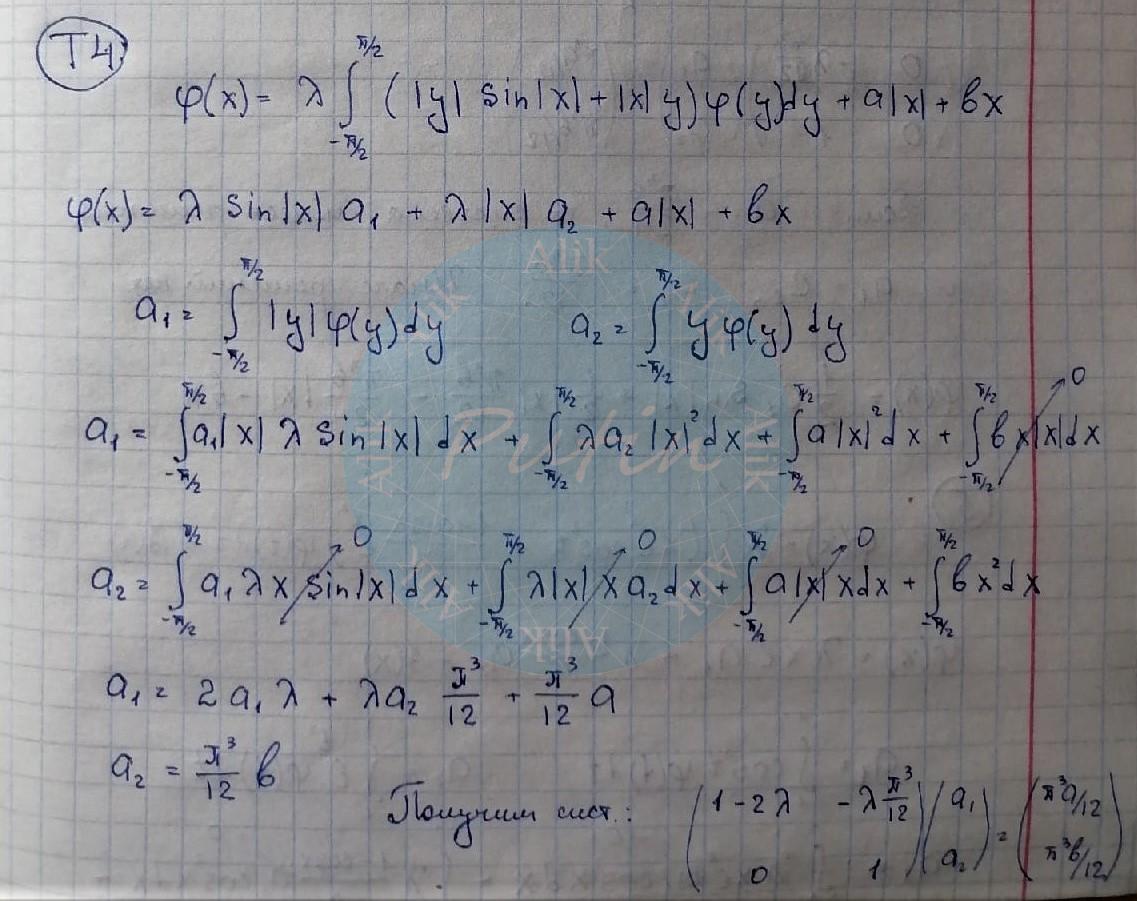 T4
φ(x) = λ ∫_{-π/2}^{π/2} (|y| sin|x| + |x| y) φ(y)dy + a|x| + bx
φ(x) = λ sin|x| a₁ + λ|x| a₂ + a|x| + bx
a₁ = ∫_{-π/2}^{π/2} |y| φ(y)dy a₂ = ∫_{-π/2}^{π/2} y φ(y) dy
a₁ = ∫_{-π/2}^{π/2} a₁|x| λ sin|x| dx + ∫_{-π/2}^{π/2} λa₂ |x|² dx + ∫_{-π/2}^{π/2} a|x|² dx + ∫_{-π/2}^{π/2} b x|x|dx → 0
a₂ = ∫_{-π/2}^{π/2} a₁ λ x sin|x| dx → 0 + ∫_{-π/2}^{π/2} λ|x| x a₂ dx → 0 + ∫_{-π/2}^{π/2} a|x| x dx → 0 + ∫_{-π/2}^{π/2} b x² dx
a₁ = 2a₁λ + λa₂ π³/12 + π³/12 a
a₂ = π³/12 b
Получим сист.: (1-2λ -λ π³/12; 0 1) (a₁; a₂) = (π³a/12; π³b/12)
Alik
Alik
Alik
Alik
Alik
Alik
Alik
Alik
Putin